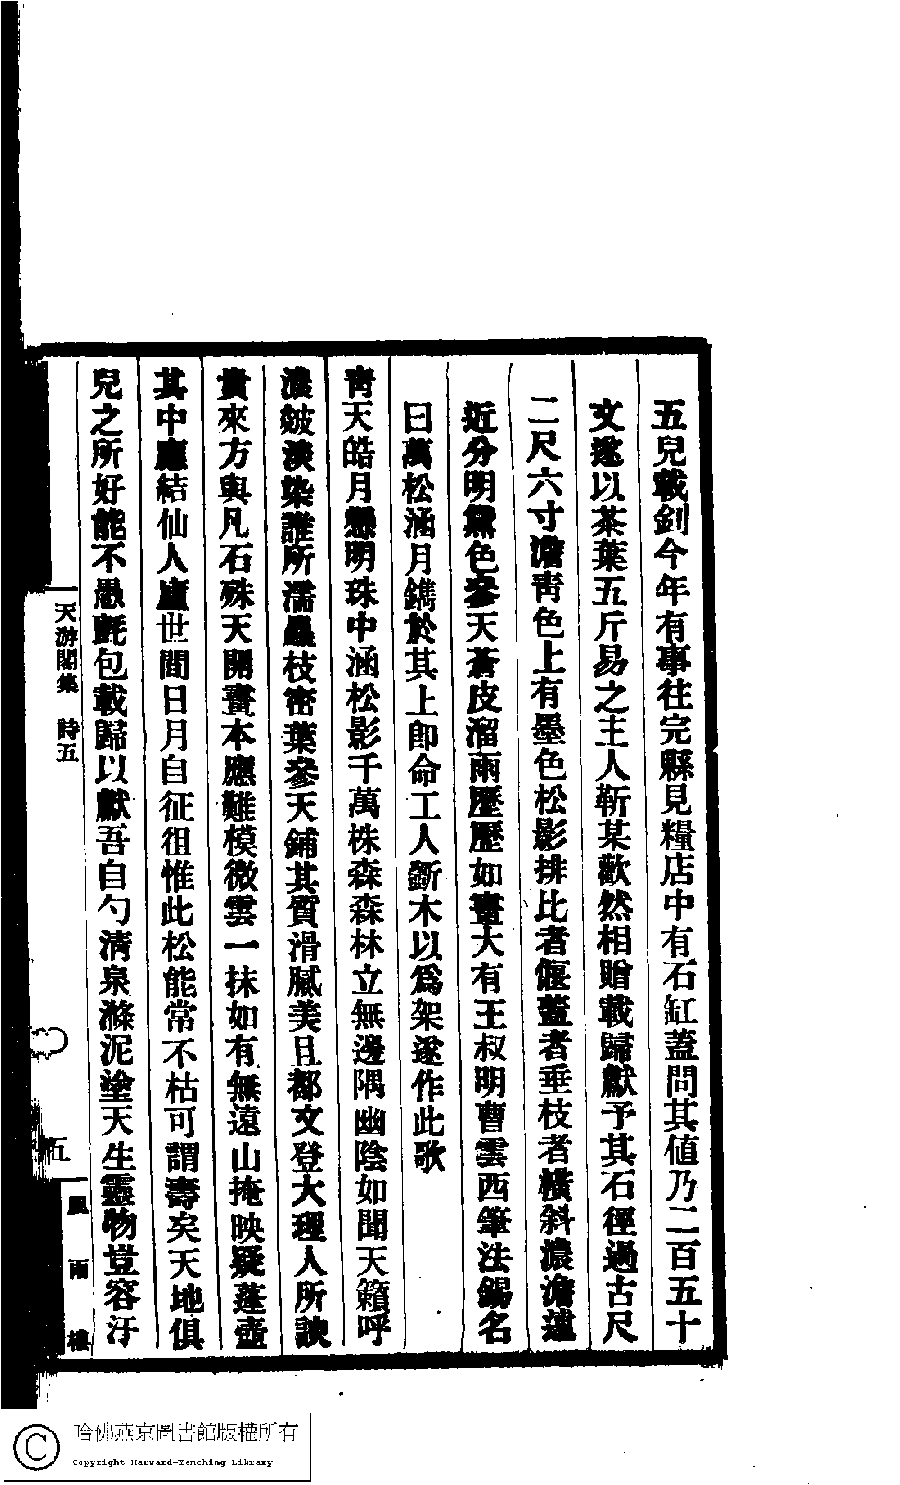 五兒載釗今年有事往完縣見糧店中有石缸蓋問其值乃二百五十
文遂以茶葉五斤易之主人靳某歡然相贈載歸獻予其石徑過古尺
二尺六寸澹靑色上有墨色松影排比者偃蓋者垂枝者橫斜濃澹遠
近分明黛色參天蒼皮溜雨歷歷如畫大有王叔明曹雲西筆法錫名
曰萬松涵月鐫於其上卽命工人斲木以爲架遂作此歌
靑天皓月懸明珠中涵松影千萬株森森林立無邊隅幽陰如聞天籟呼
濃皴淡染誰所濡蟲枝密葉參天鋪其質滑膩美且都文登大理人所諛
貴來方與凡石殊天開畫本應難模微雲一抹如有無遠山掩映疑蓬壺
其中應結仙人廬世間日月自征徂惟此松能常不枯可謂壽矣天地俱
兒之所好能不愚氈包載歸以獻吾自勺清泉滌泥塗天生靈物豈容汙
天游閣集 詩五
五
風雨樓
哈佛燕京圖書館版權所有
Copyright Harvard-Yenching Library